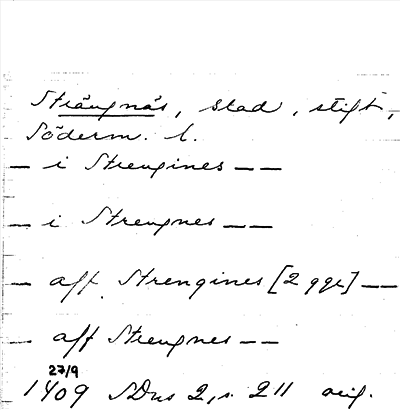 Strängnäs, stad, stift,
Söderm. l.
— i Strengines — —
— i Strengnes — —
— aff Strengines [2 ggr] — —
— aff Strengnes — —
27/9
1409 SDns 2, s. 211 orig.